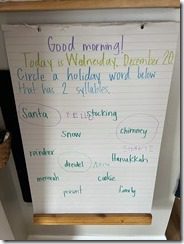 Good morning!
Today is Wednesday, December 20
Circle a holiday word below
that has 2 syllables.
Santa stocking
snow chimney
reindeer
dreidel Hanukkah
menorah cookie
present family